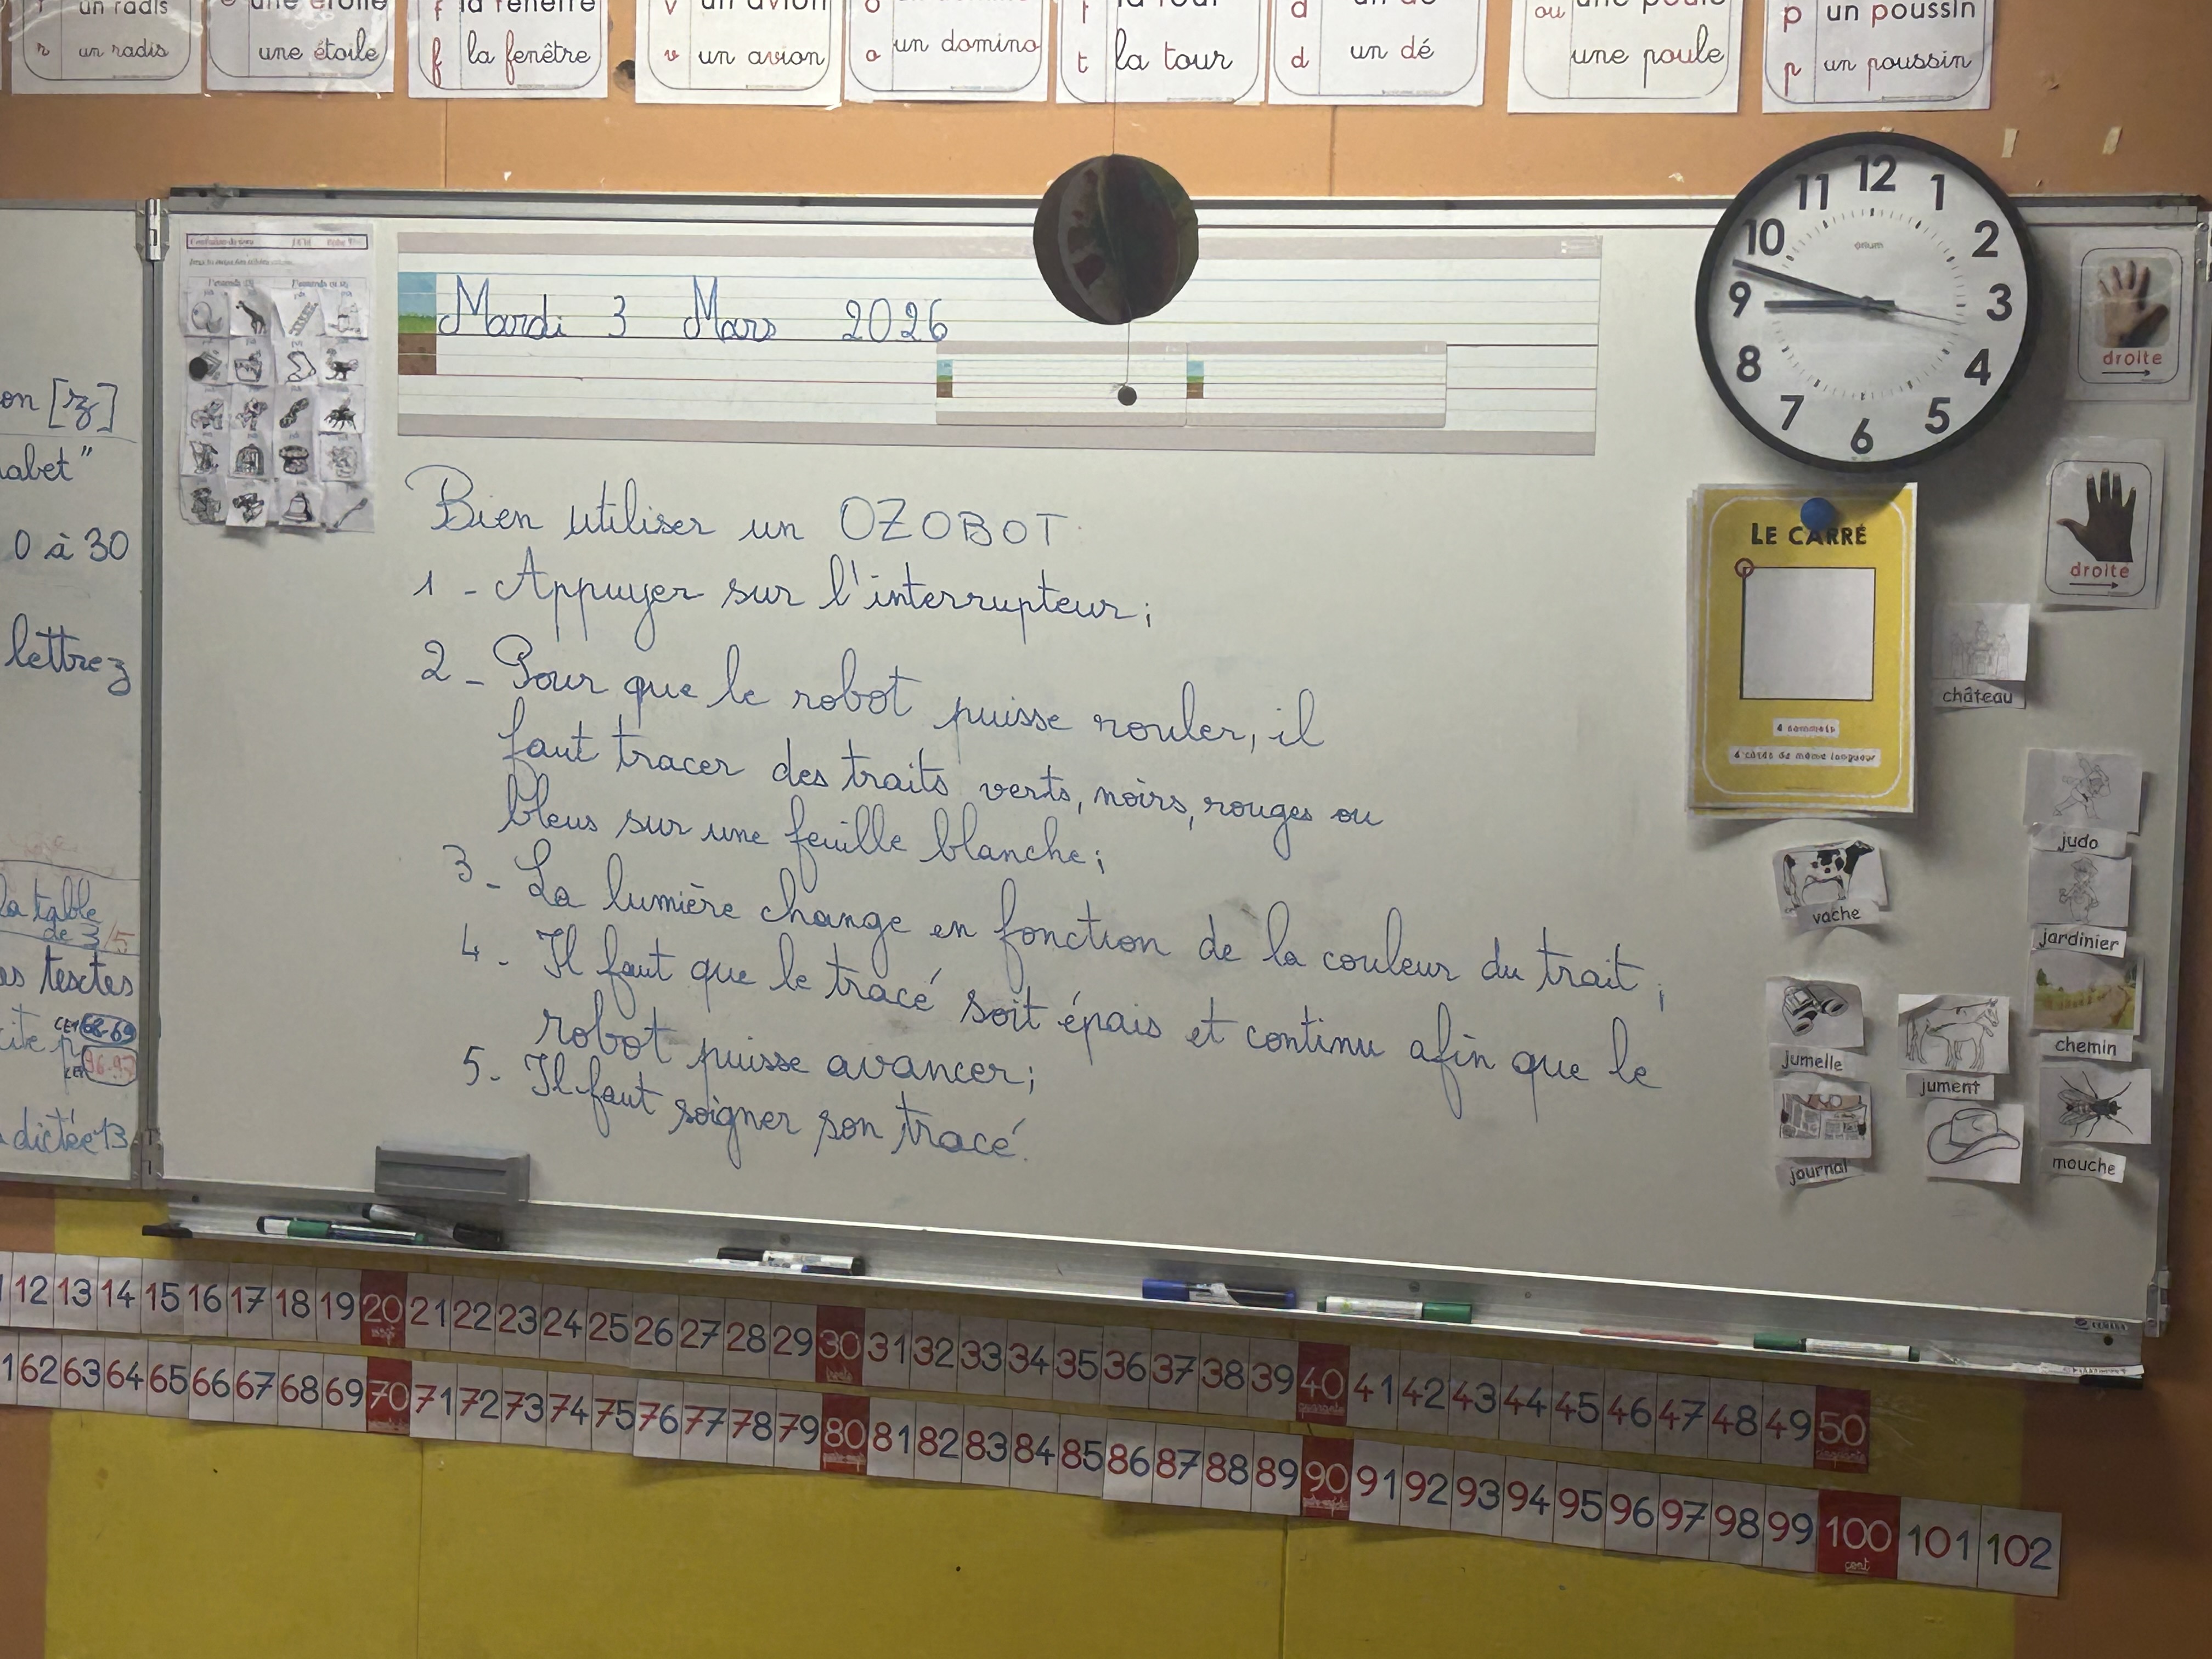 un radis
r un radis
une étoile
une étoile
la fenêtre
f la fenêtre
un avion
v un avion
o un domino
la tour
t la tour
d un dé
d un dé
ou une poule
une poule
p un poussin
p un poussin
12 1 2 3 4 5 6 7 8 9 10 11
orium
droite
droite
Mardi 3 Mars 2026
Bien utiliser un OZOBOT
1 - Appuyer sur l'interrupteur;
2 - Pour que le robot puisse rouler, il
faut tracer des traits verts, noirs, rouges ou
bleus sur une feuille blanche;
3 - La lumière change en fonction de la couleur du trait;
4 - Il faut que le tracé soit épais et continu afin que le
robot puisse avancer;
5 - Il faut soigner son tracé.
on [z]
abet"
0 à 30
lettre z
la table
de 3/5
es textes
CE1 68-69
dictée 13
LE CARRÉ
4 sommets
4 côtés de même longueur
château
judo
vache
jardinier
jumelle
jument
chemin
journal
mouche
12 13 14 15 16 17 18 19 20 21 22 23 24 25 26 27 28 29 30 31 32 33 34 35 36 37 38 39 40 41 42 43 44 45 46 47 48 49 50
vingt trente quarante cinquante
62 63 64 65 66 67 68 69 70 71 72 73 74 75 76 77 78 79 80 81 82 83 84 85 86 87 88 89 90 91 92 93 94 95 96 97 98 99 100 101 102
cent